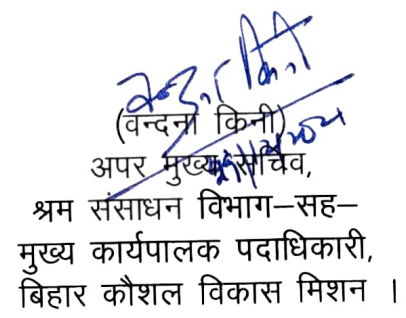 वन्दना किनी
(वन्दना किनी)
अपर मुख्य सचिव,
श्रम संसाधन विभाग–सह–
मुख्य कार्यपालक पदाधिकारी,
बिहार कौशल विकास मिशन ।